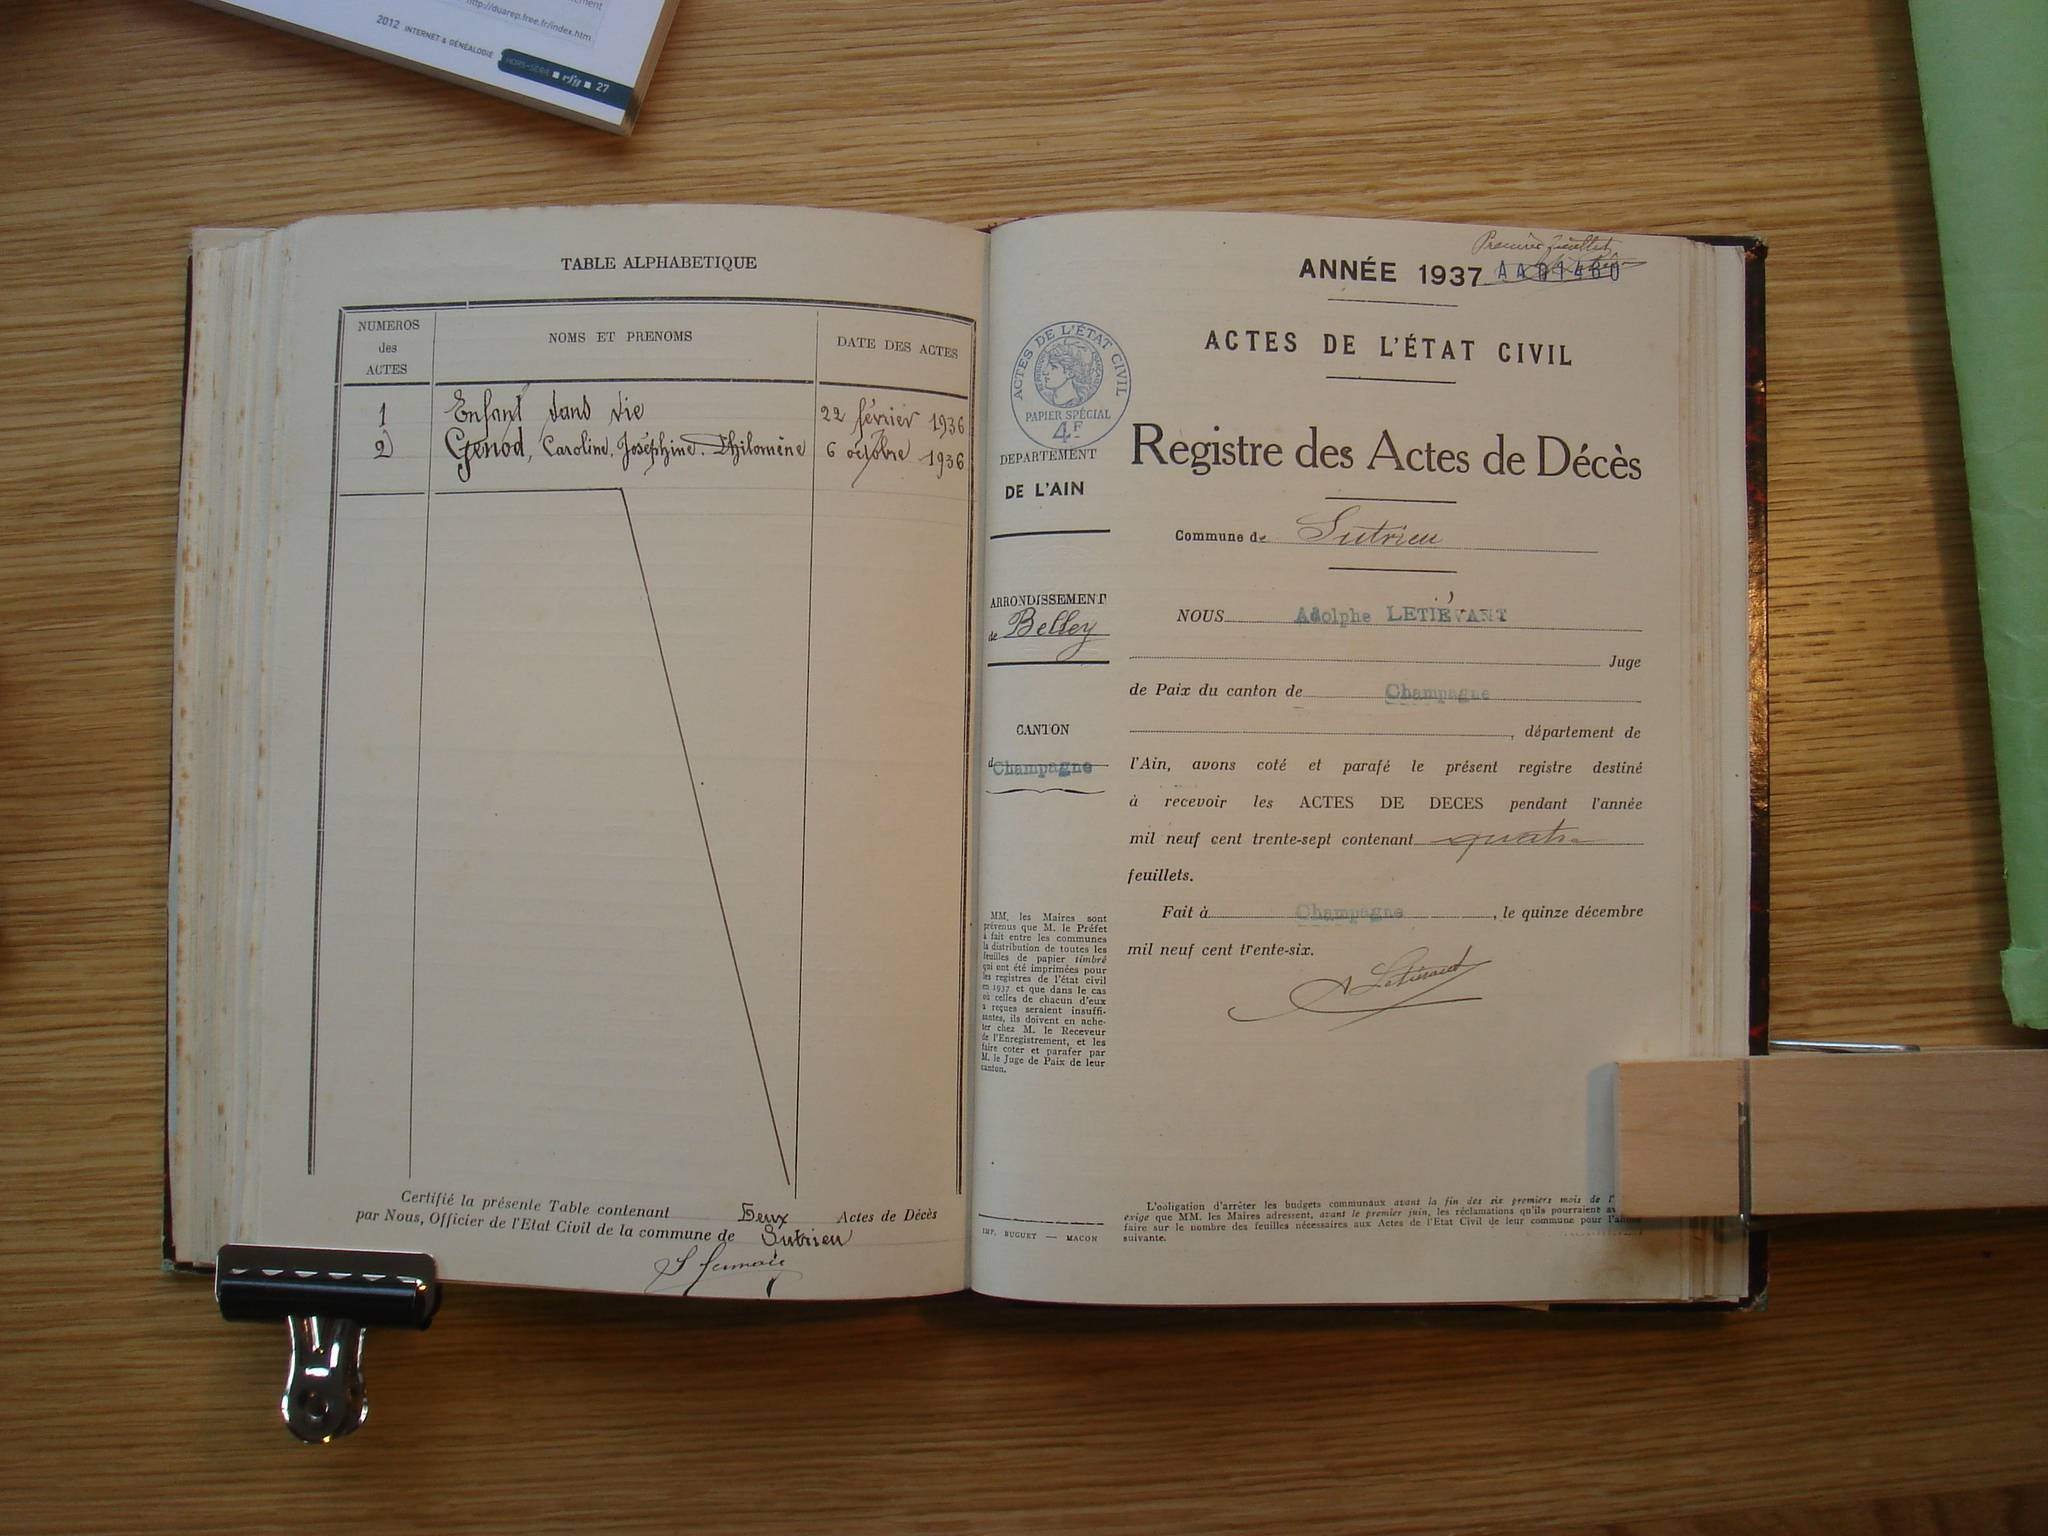 ement
http://duarep.free.fr/index.htm
2012 INTERNET & GÉNÉALOGIE HORS-SÉRIE ■ rfg ■ 27
TABLE ALPHABETIQUE
NUMEROS des ACTES
NOMS ET PRENOMS
DATE DES ACTES
1 Enfant sans vie 22 février 1936
2 Genod, Caroline, Joséphine. Philomène 6 octobre 1936
Certifié la présente Table contenant Deux Actes de Décès
par Nous, Officier de l'Etat Civil de la commune de Sutrieu
Premier feuillet
ANNÉE 1937
ACTES DE L'ÉTAT CIVIL
ACTES DE L'ÉTAT CIVIL
RÉPUBLIQUE FRANÇAISE
PAPIER SPÉCIAL
4F
DEPARTEMENT
DE L'AIN
Registre des Actes de Décès
Commune de Sutrieu
ARRONDISSEMENT
de Belley
CANTON
d Champagne
NOUS Adolphe LETIÉVANT
Juge
de Paix du canton de Champagne
, département de
l'Ain, avons coté et parafé le présent registre destiné
à recevoir les ACTES DE DECES pendant l'année
mil neuf cent trente-sept contenant quatre
feuillets.
Fait à Champagne, le quinze décembre
mil neuf cent trente-six.
A Letiévant
MM. les Maires sont
prévenus que M. le Préfet
a fait entre les communes
la distribution de toutes les
feuilles de papier timbré
qui ont été imprimées pour
les registres de l'état civil
en 1937 et que dans le cas
où celles de chacun d'eux
a reçues seraient insuffi-
santes, ils doivent en ache-
ter chez M. le Receveur
de l'Enregistrement, et les
faire coter et parafer par
M. le Juge de Paix de leur
canton.
IMP. BUGUET — MACON
L'oligation d'arrêter les budgets communaux avant la fin des six premiers mois de l'
exige que MM. les Maires adressent, avant le premier juin, les réclamations qu'ils pourraient av
faire sur le nombre des feuilles nécessaires aux Actes de l'Etat Civil de leur commune pour l'année
suivante.